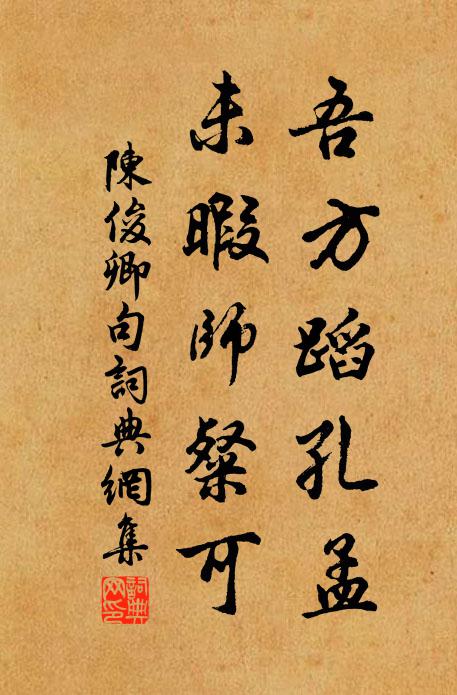 吾方蹈孔孟
未暇師粲可
陳俊卿句詞典網集
詞典網印